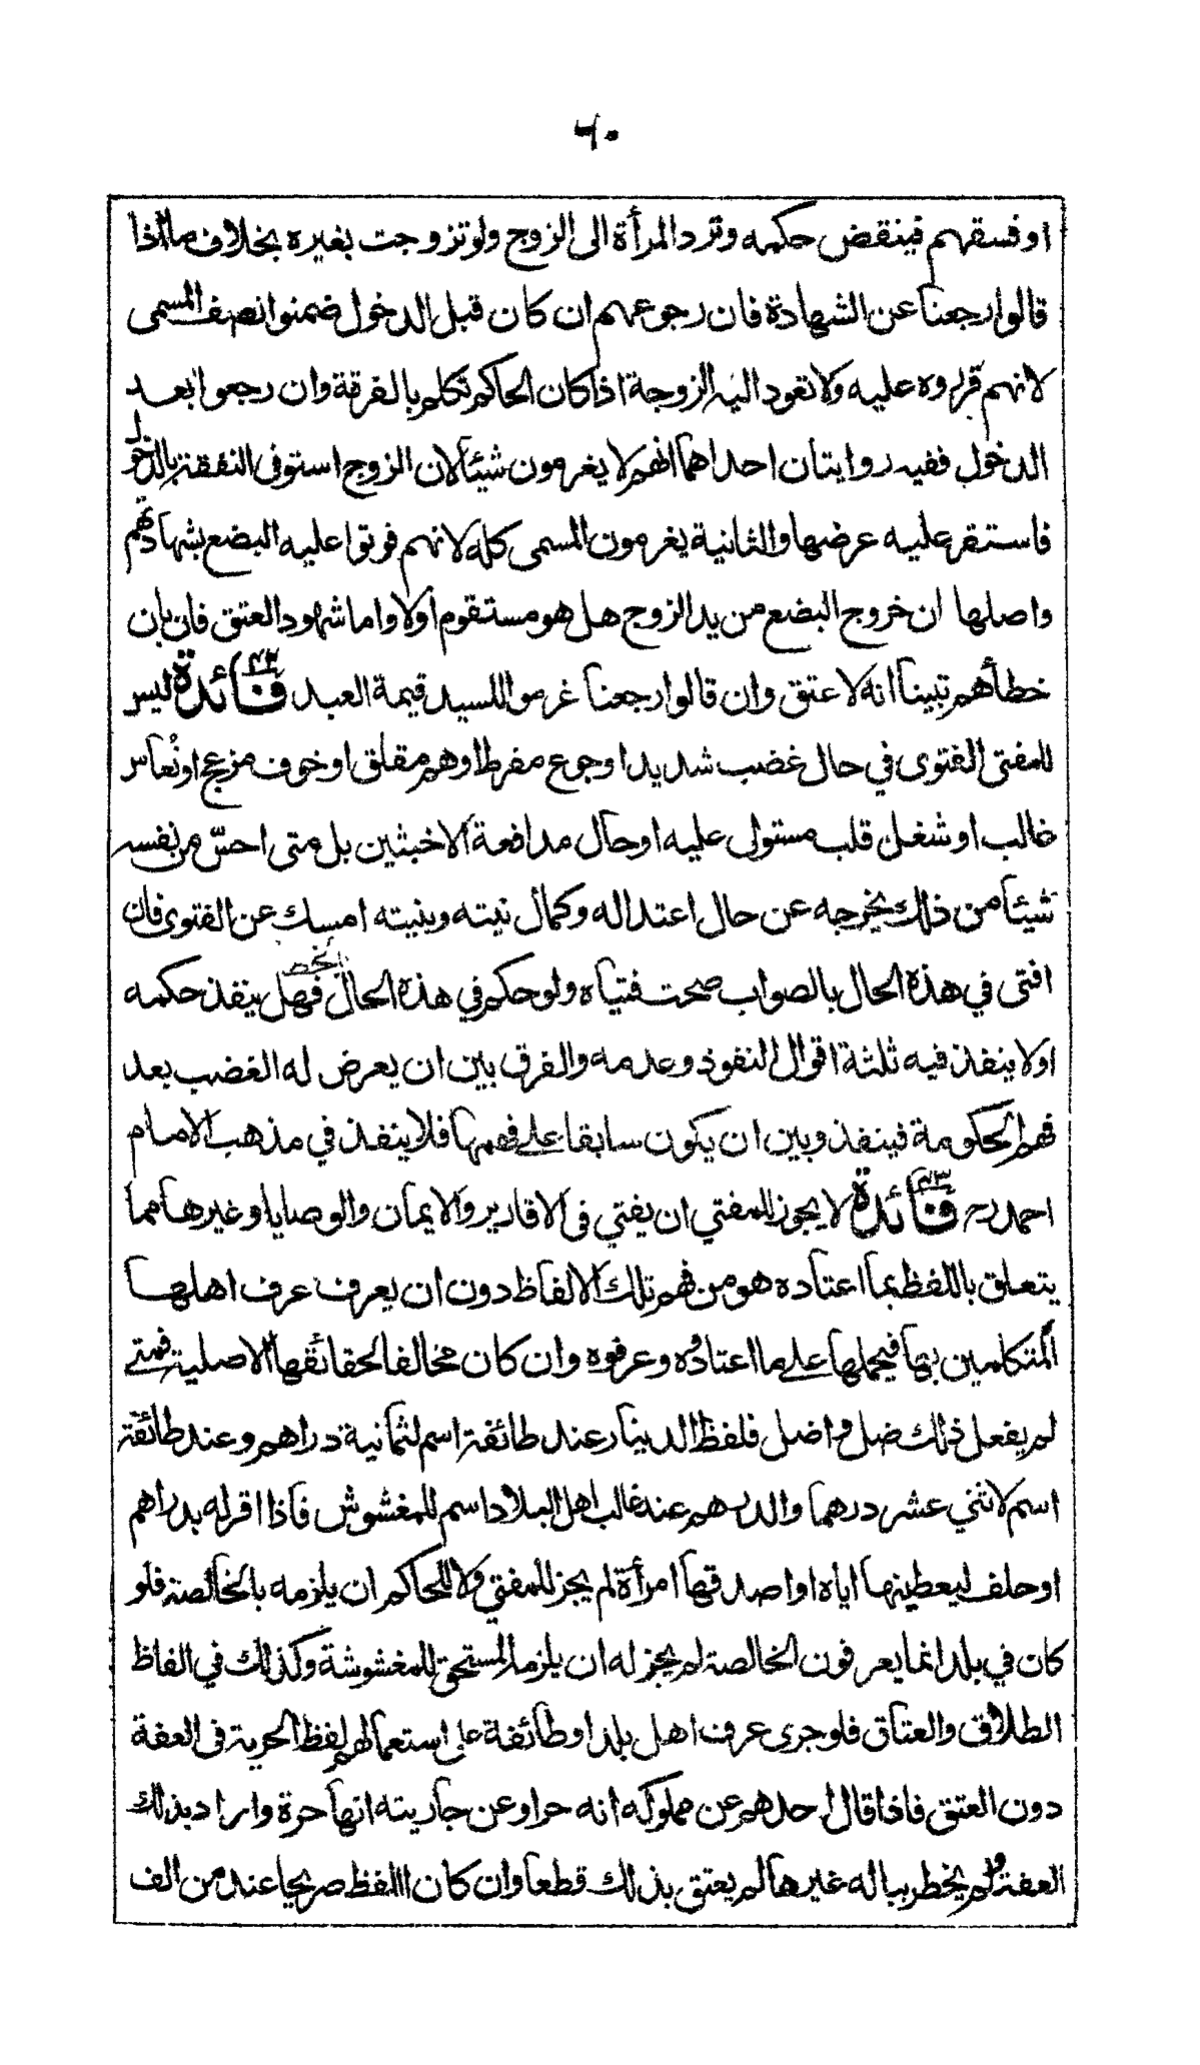 ٦٠
او فسقهم فينقض حكمه وترد المرأة الى الزوج ولو تزوجت بغيره بخلاف ما اذا
قالوا رجعنا عن الشهادة فان رجوعهم ان كان قبل الدخول ضمنوا نصف المسمى
لانهم قرروه عليه ولا تعود اليه الزوجة اذا كان الحاكم تكلم بالفرقة وان رجعوا بعد
الدخول ففيه روايتان احداهما انهم لا يغرمون شيئا لان الزوج استوفى النفقة بالدخول
فاستقر عليه عرضها والثانية يغرمون المسمى كله لانهم فوتوا عليه البضع بشهادتهم
واصلها ان خروج البضع من يد الزوج هل هو مستقوم اولا واما شهود العتق فان بان
خطأهم تبينا انه لا عتق وان قالوا رجعنا غرموا للسيد قيمة العبد فائدة ليس
للمفتى الفتوى في حال غضب شديد او جوع مفرط او هم مقلق او خوف مزعج او نُعاس
غالب او شغل قلب مستولى عليه او حال مدافعة الاخبثين بل متى احسّ من نفسه
شيئا من ذلك يخرجه عن حال اعتداله وكمال نيته وبنيته امسك عن الفتوى فان
افتى في هذه الحال بالصواب صحت فتياه ولو حكم في هذه الحال فهل ينفذ حكمه
اولا ينفذ فيه ثلثة اقوال النفوذ وعدمه والفرق بين ان يعرض له الغضب بعد
فهم الحكومة فينفذ وبين ان يكون سابقا على فهمها فلا ينفذ في مذهب الامام
احمد رح فائدة ٤٣ لا يجوز للمفتي ان يفتي في الاقارير والايمان والوصايا وغيرها مما
يتعلق باللفظ بما اعتاده هو من فهم تلك الالفاظ دون ان يعرف عرف اهلها
المتكلمين بها فيحملها على ما اعتادوه وعرفوه وان كان مخالفا لحقائقها الاصلية فمتى
لم يفعل ذلك ضل واضل فلفظ الدينار عند طائفة اسم لثمانية دراهم وعند طائفة
اسم لاثني عشر درهما والدرهم عند غالب اهل البلاد اسم للمغشوش فاذا اقر له بدراهم
او حلف ليعطينها اياه او اصدقها امرأة لم يجز للمفتي ولا للحاكم ان يلزمه بالخالصة فلو
كان في بلد انما يعرفون الخالصة لم يجز له ان يلزم المستحق للمغشوشة وكذلك في الفاظ
الطلاق والعتاق فلو جرى عرف اهل بلد او طائفة على استعمالهم لفظ الحرية في العفة
دون العتق فاذا قال احدهم عن مملوكه انه حر او عن جاريته انها حرة واراد بذلك
العفة ولم يخطر بباله غيرها لم يعتق بذلك قطعا وان كان اللفظ صريحا عند من الف